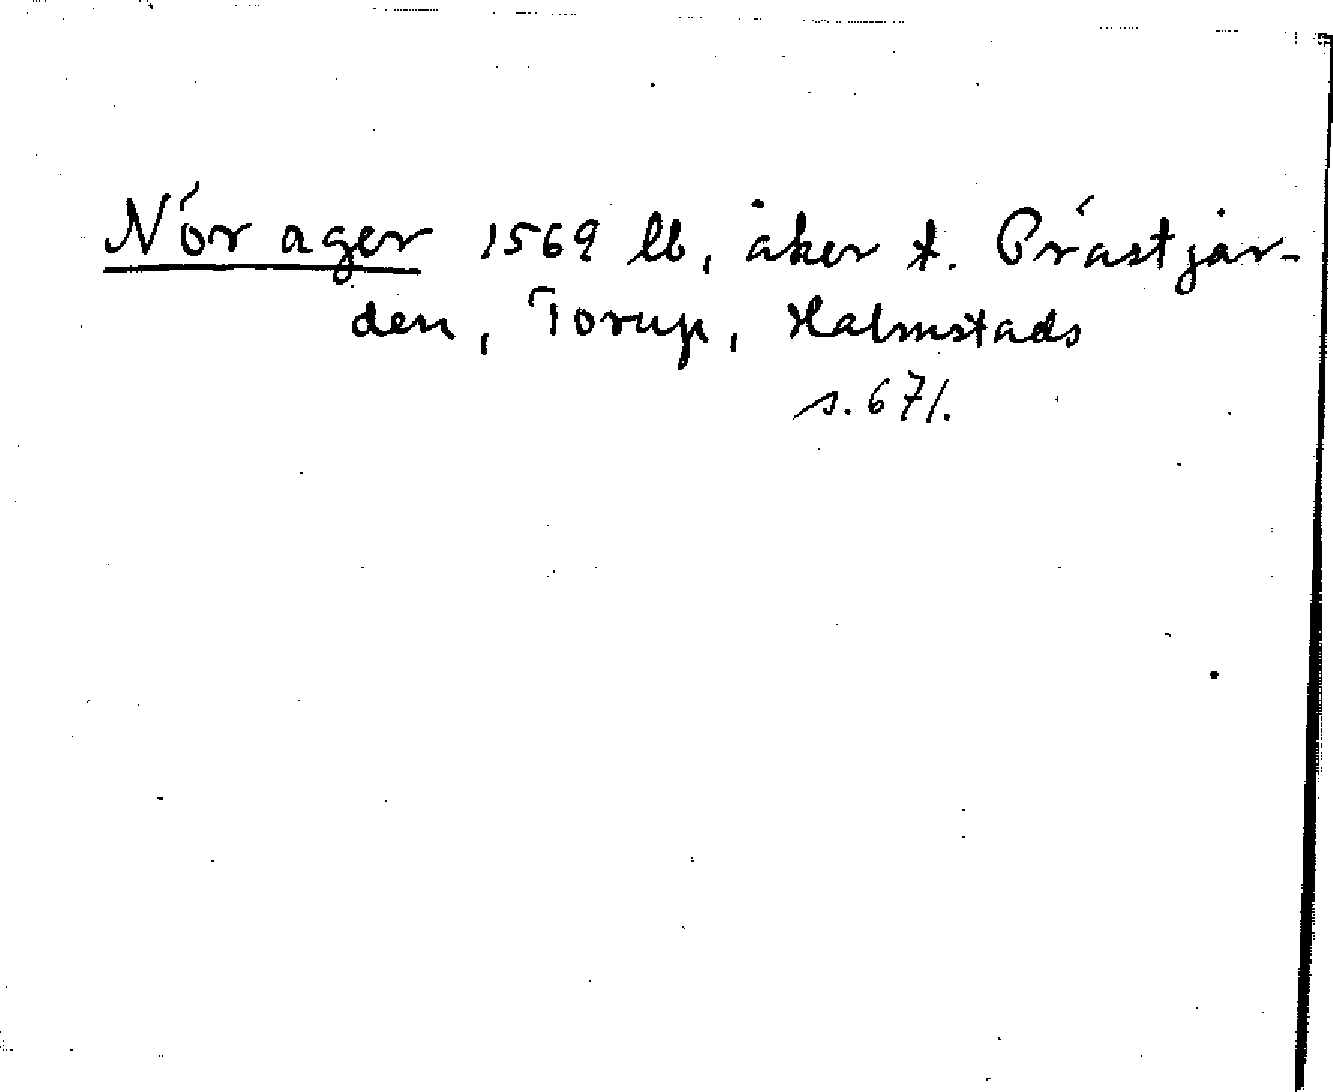 Nör ager 1569 lb, åker t. Prästjår-
den, Torup, Halmstads
s. 671.